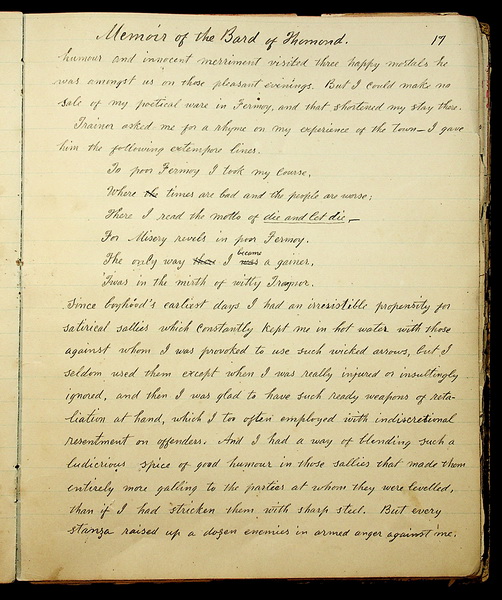 Memoir of the Bard of Thomond. 17
humour and innocent merriment visited three happy mortals he
was amongst us on those pleasant evenings. But I could make no
sale of my poetical ware in Fermoy, and that shortened my stay there.
Trainor asked me for a rhyme on my experience of the town—I gave
him the following extempore lines.
To poor Fermoy I took my course,
Where the times are bad and the people are worse;
There I read the motto of die and let die—
For Misery revels in poor Fermoy.
The only way I became was a gainer,
Twas in the mirth of witty Traynor.
Since boyhood's earliest days I had an irresistible propensity for
satirical sallies which constantly kept me in hot water with those
against whom I was provoked to use such wicked arrows, but I
seldom used them except when I was really injured or insultingly
ignored, and then I was glad to have such ready weapons of reta-
liation at hand, which I too often employed with indiscretional
resentment on offenders. And I had a way of blending such a
ludicrious spice of good humour in those sallies that made them
entirely more galling to the parties at whom they were levelled,
than if I had stricken them with sharp steel. But every
stanza raised up a dozen enemies in armed anger against me.